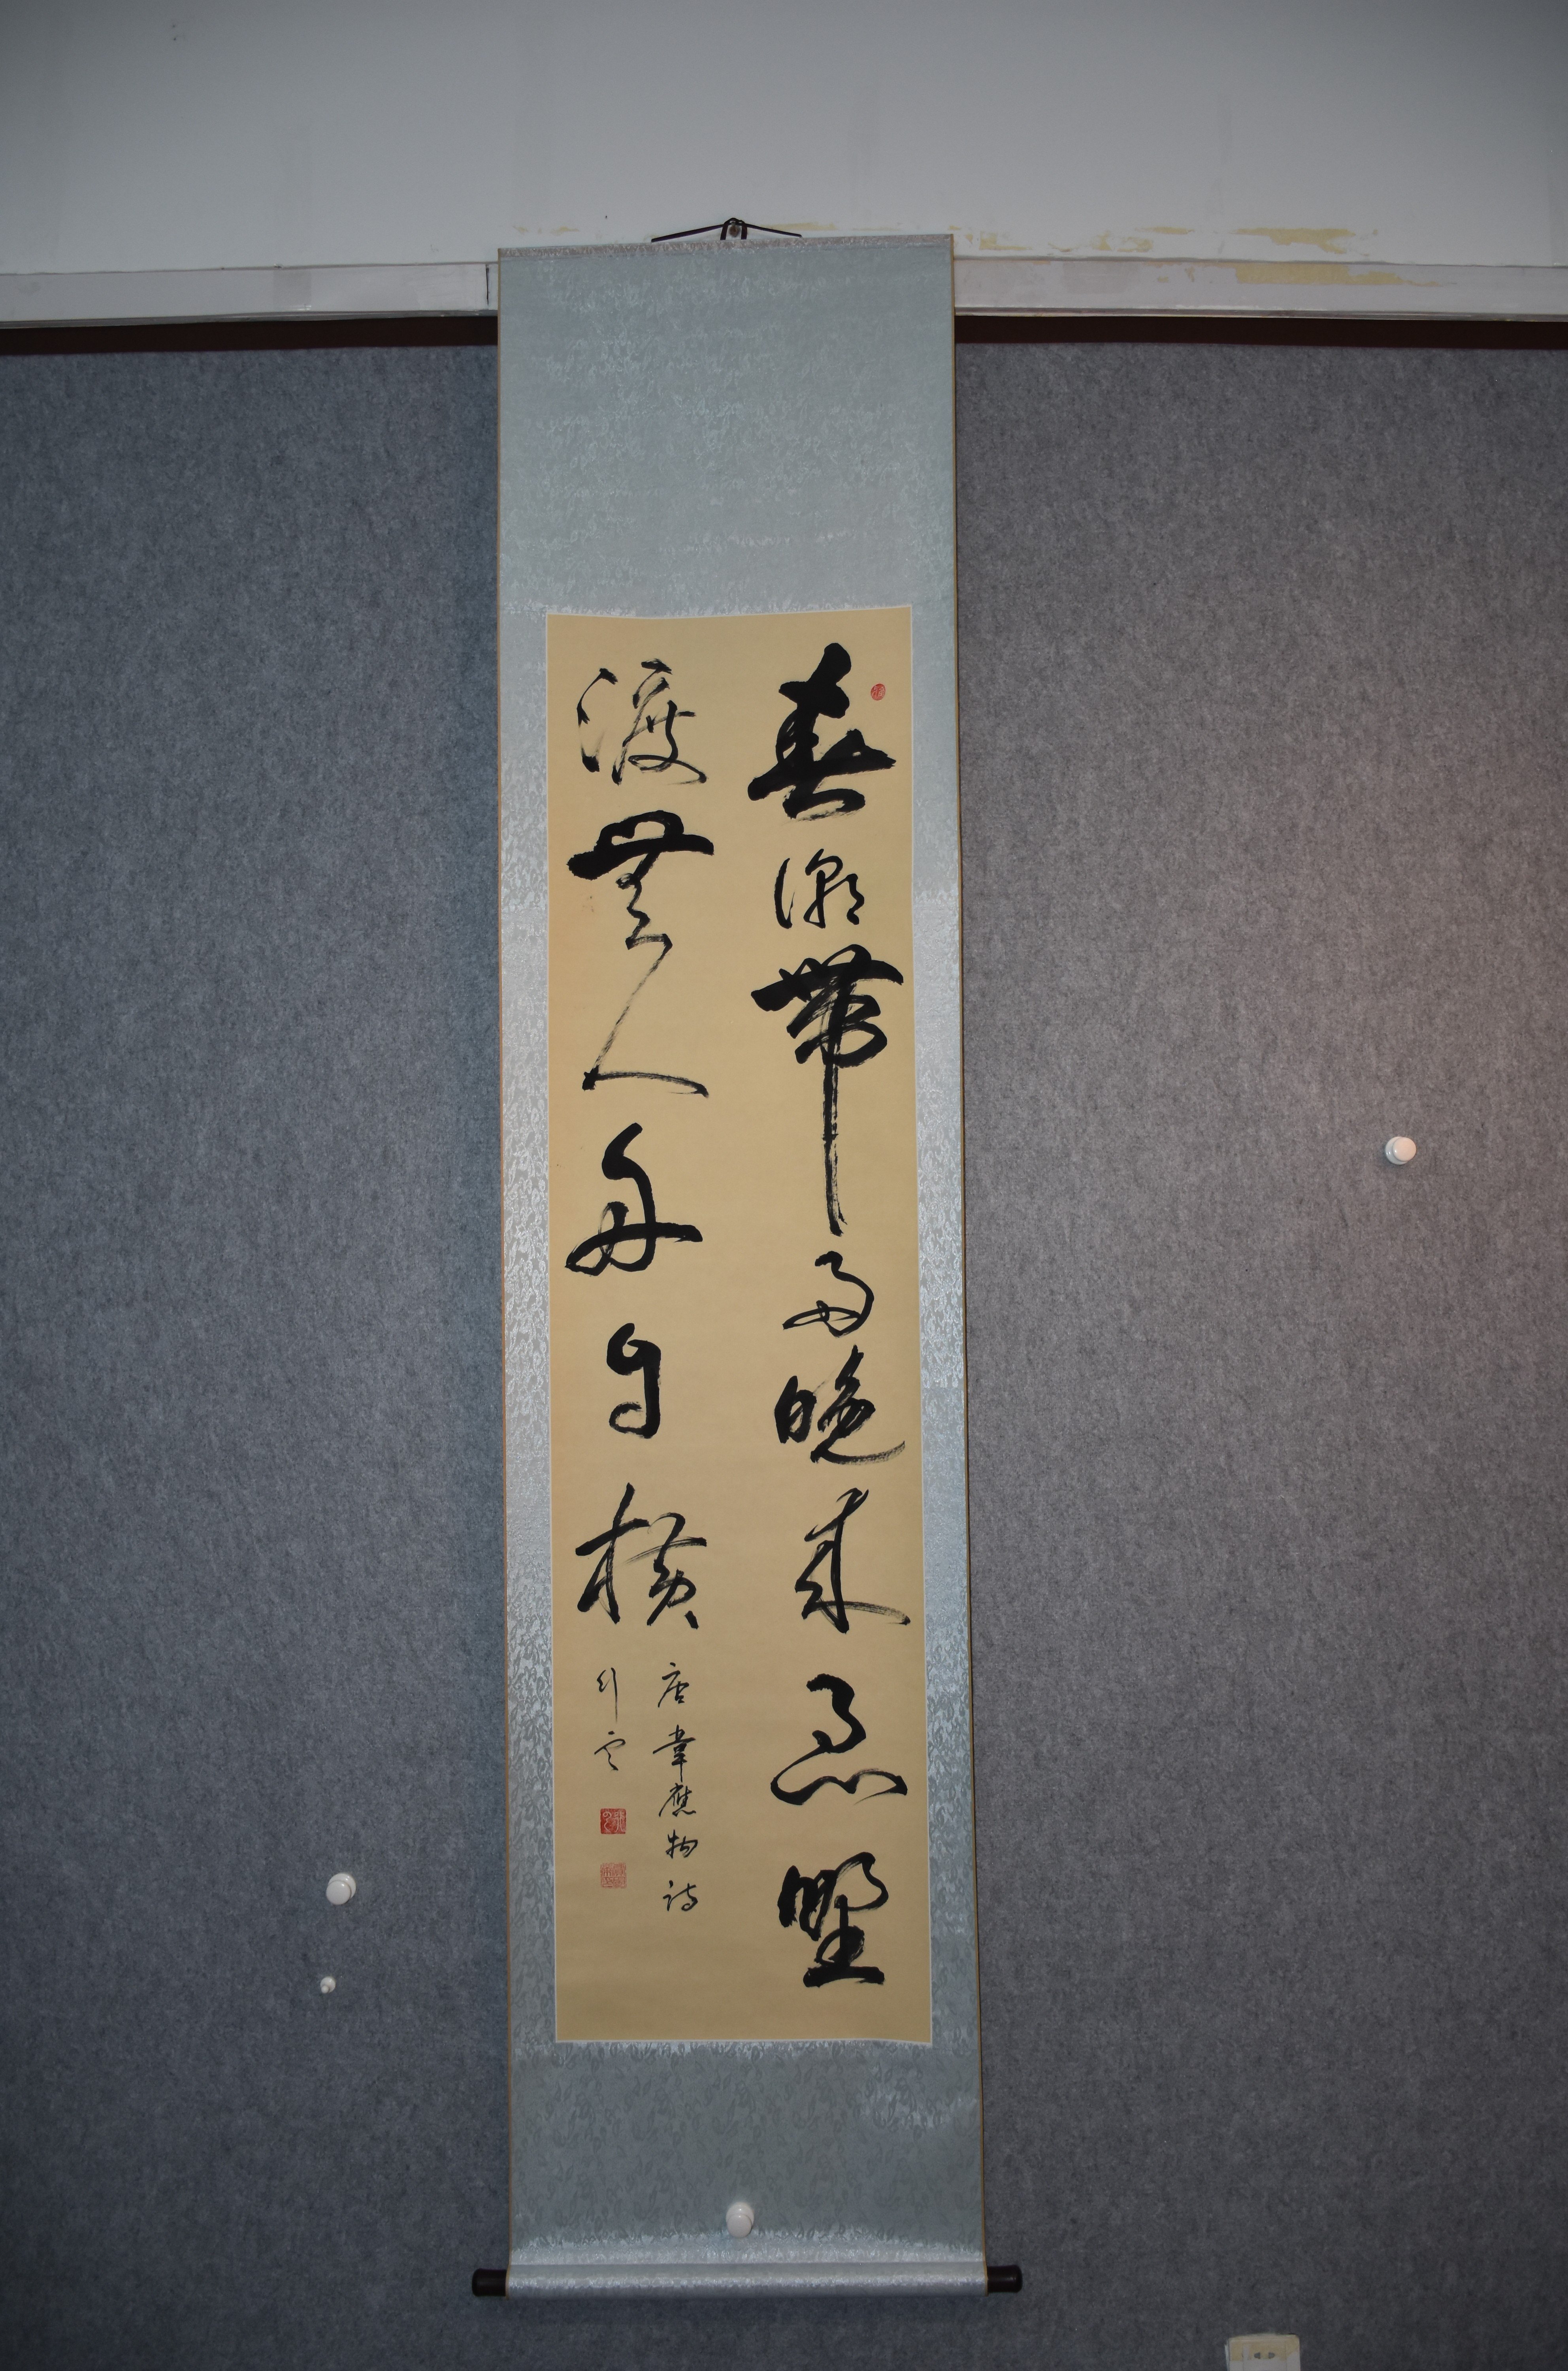 春潮帶雨晚来急野
渡無人舟自横
唐韋應物詩